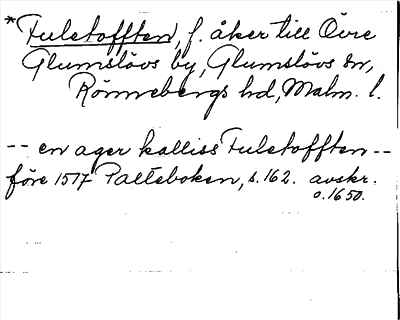 *Fuletofften, f. åker till Övre
Glumslövs by, Glumslövs sn,
Rönnebergs hd, Malm. l.
-- en ager kalliss Fuletofften --
före 1517 Palteboken, s. 162. avskr.
o. 1650.